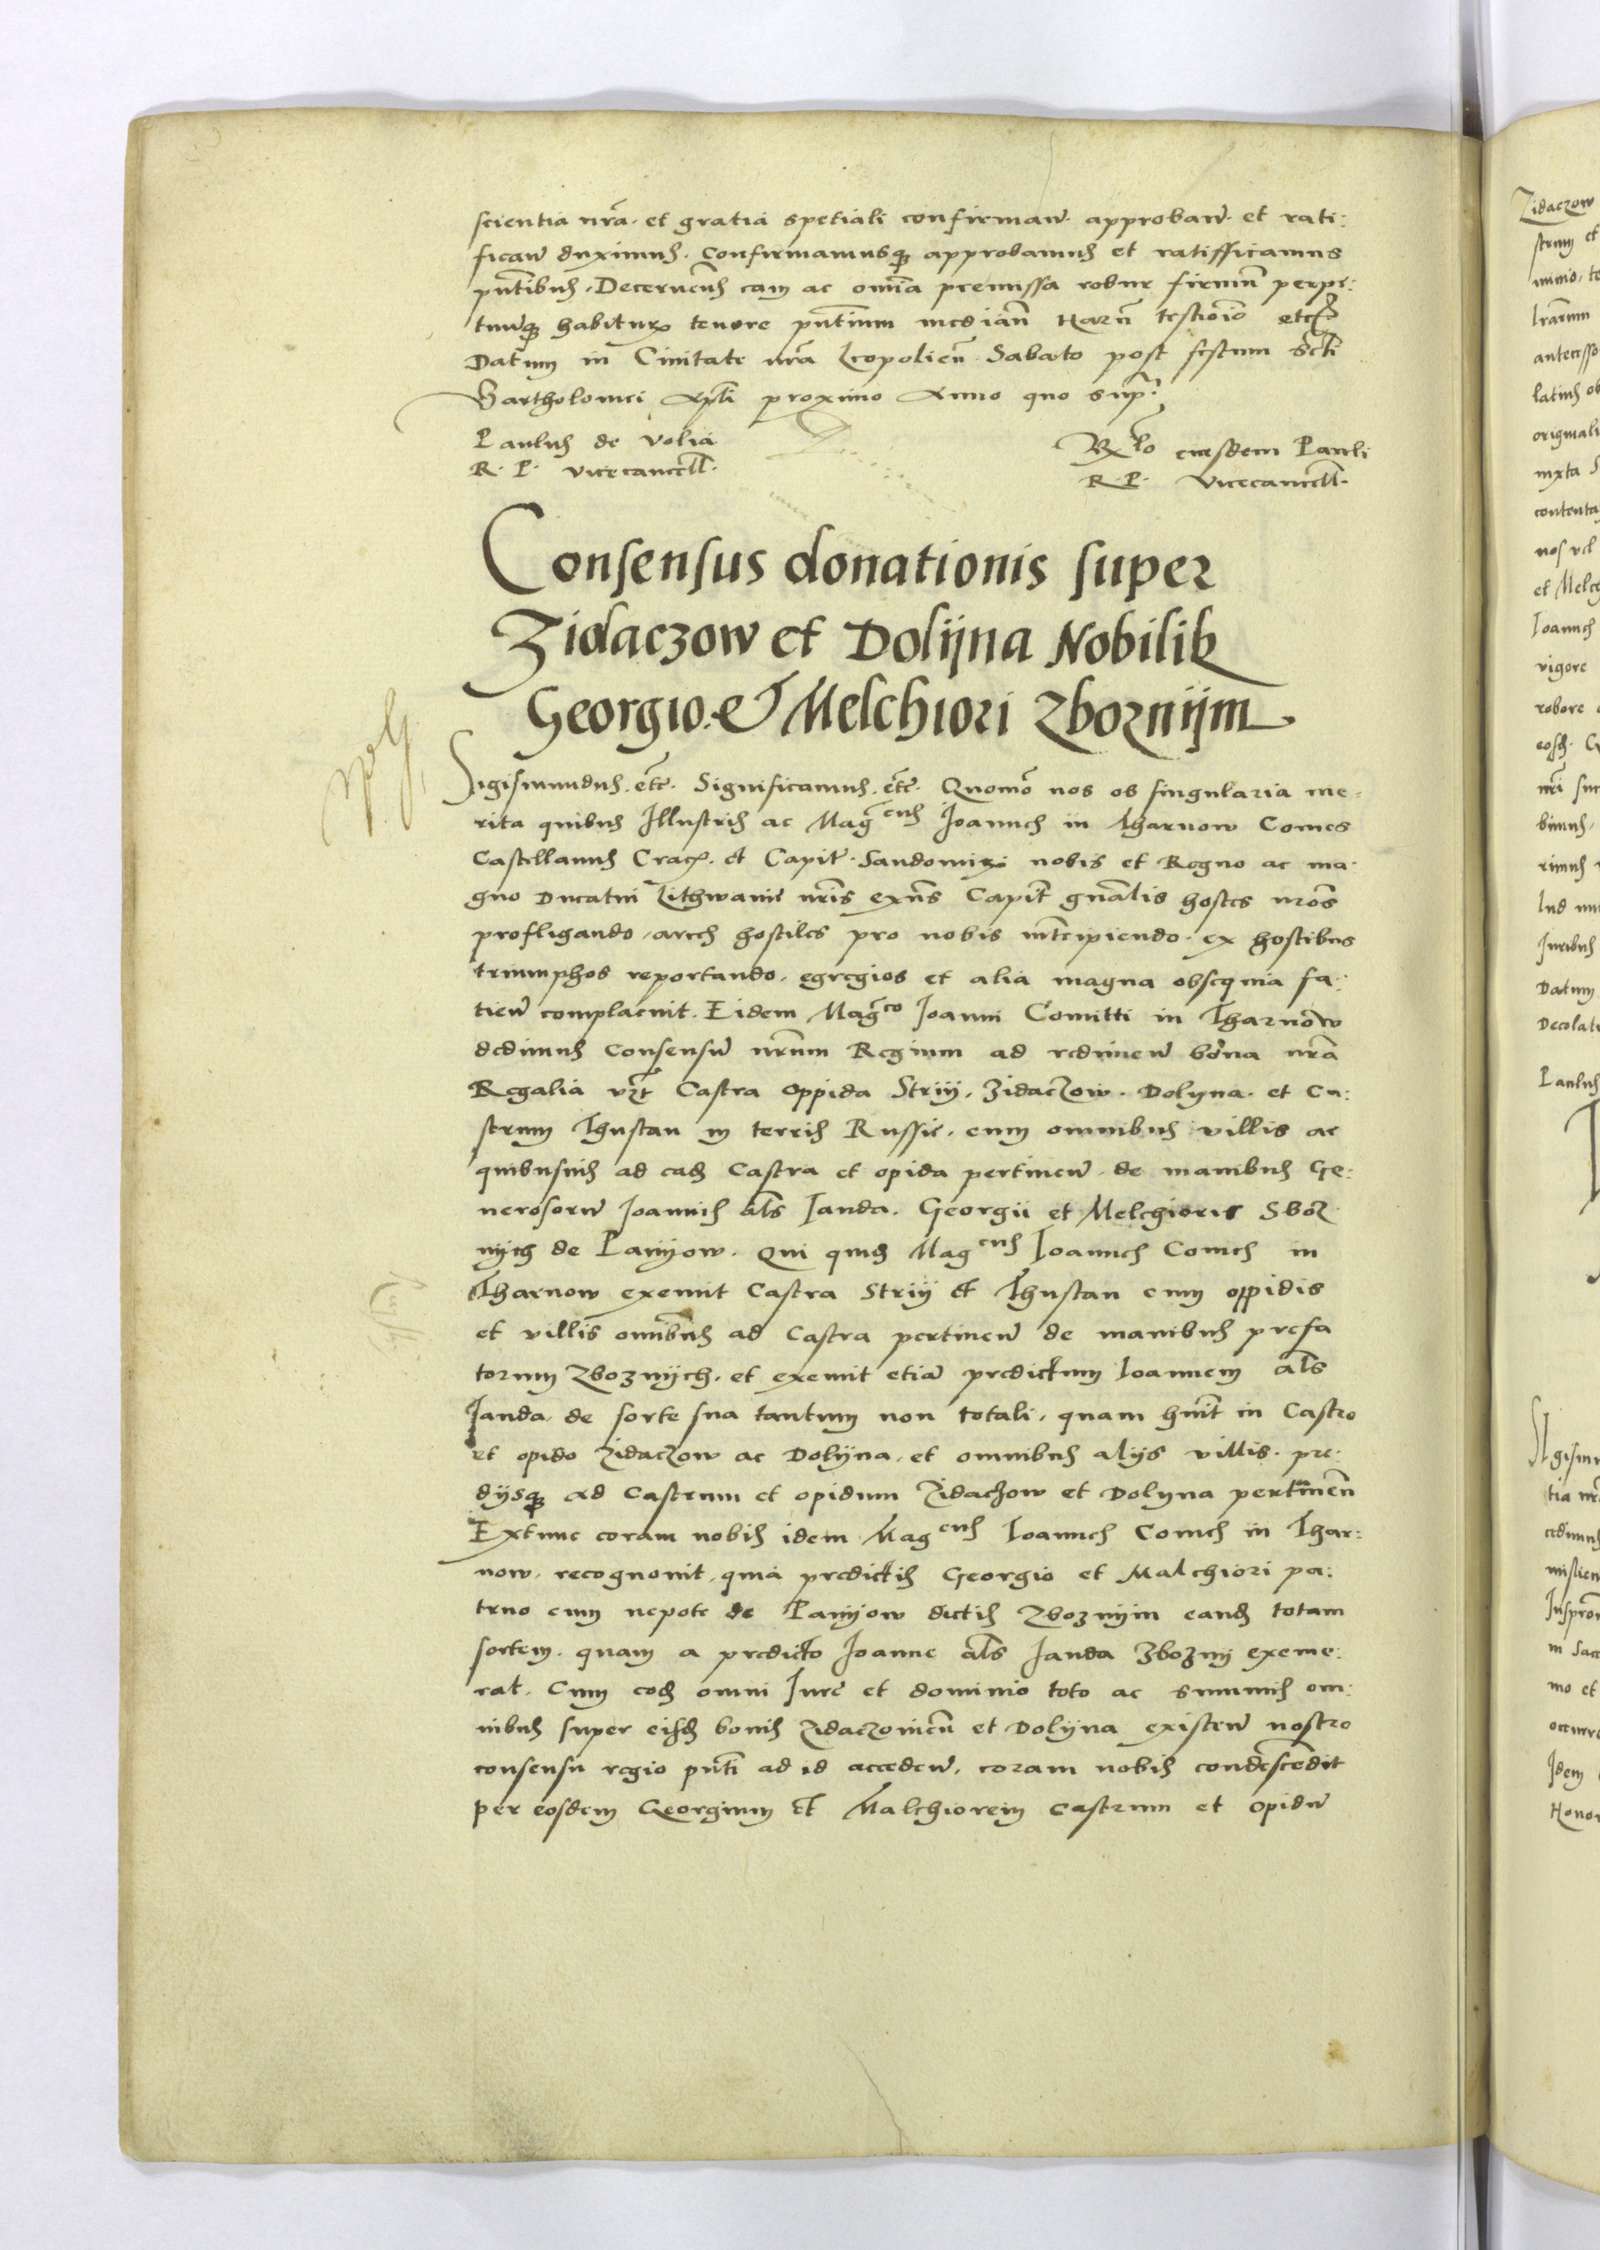 scientia nr̃a. et gratia spetiali confirmañ. approbañ. et rati:
ficañ duximus. Confirmamusq; approbamus et ratifficamus
pñtibus. Decernentes eam ac omĩa premissa robur firmũ perpe:
tuũq; habitur tenore pñtium medianñ harũ testiõio etc̃
Datum in Ciuitate nr̃a Leopolieñ Sabato post festum Scti
Bartholomei Apl̃i proximo Anno quo sup̃.
Paulus de Volia
R. P. vicecancell.
R̃lo eiusdem Pauli
R. P. vicecancell.
Consensus donationis super
Zidaczow et Dolijna Nobilib;
Georgio. et Melchiori Zboznijm
Sigismundus. etc̃. Significamus. etc̃. Quomõ nos ob singularia me:
rita quibus Illustris ac Mag̃cus Ioannes in Tharnow Comes
Castellanus Crac̃. et Capit̃. Sandomir nobis et Regno ac ma:
gno Ducatui Lithwanie nr̃is exñs Capit̃ gñalis hostes nr̃os
profligando, arces hostiles pro nobis intercipiendo. ex hostibus
triumphos reportando. egregios et alia magna obsequia fa:
cieñ complacuit. Eidem Mag̃co Ioanni Comitti in Tharnow
dedimus Consensũ nr̃um Regium ad redimeñ bona nr̃a
Regalia vz̃t Castra oppida Strij, Zidaczow. Dolyna. et Ca:
strum Thustan in terris Russie. cum omnibus villis ac
quibusuis ad eadẽ Castra et opida pertineñ. de manibus Ge:
nerosorũ Ioannis al̃s Ianda. Georgii et Melchioris Sboz
nijch de Panijow. Qui quidẽ Mag̃cus Ioannes Comes in
Tharnow exemit Castra Strij et Thustan cum oppidis
et villis omĩbus ad Castra pertineñ de manibus prefa
torum Zboznijch. et exemit etiã predictum Ioannem al̃s
Ianda. de sorte sua tantum non totali, quam huit̃ in Castro
et opido Zidaczow ac Dolijna. et omnibus alijs villis. pre:
dijsq; ad Castrum et opidum Zidaczow et Dolyna pertineñ
Extunc coram nobis idem Mag̃cus Ioannes Comes in Thar:
now. recognouit. quia predictis Georgio et Malchiori pa:
truo cum nepote de Panijow dictis Zboznijm eandẽ totam
sortem. quam a predicto Ioanne al̃s Ianda Zboznij exeme:
rat. Cum eodẽ omni Iure et dominio toto ac summis om:
nibus super eisdẽ bonis Zidaczowieñ et Dolijna existeñ nostro
consensu regio pñti ad id accedeñ. coram nobis condescendit
per eosdem Georgium et Malchiorem Castrum et opidũ